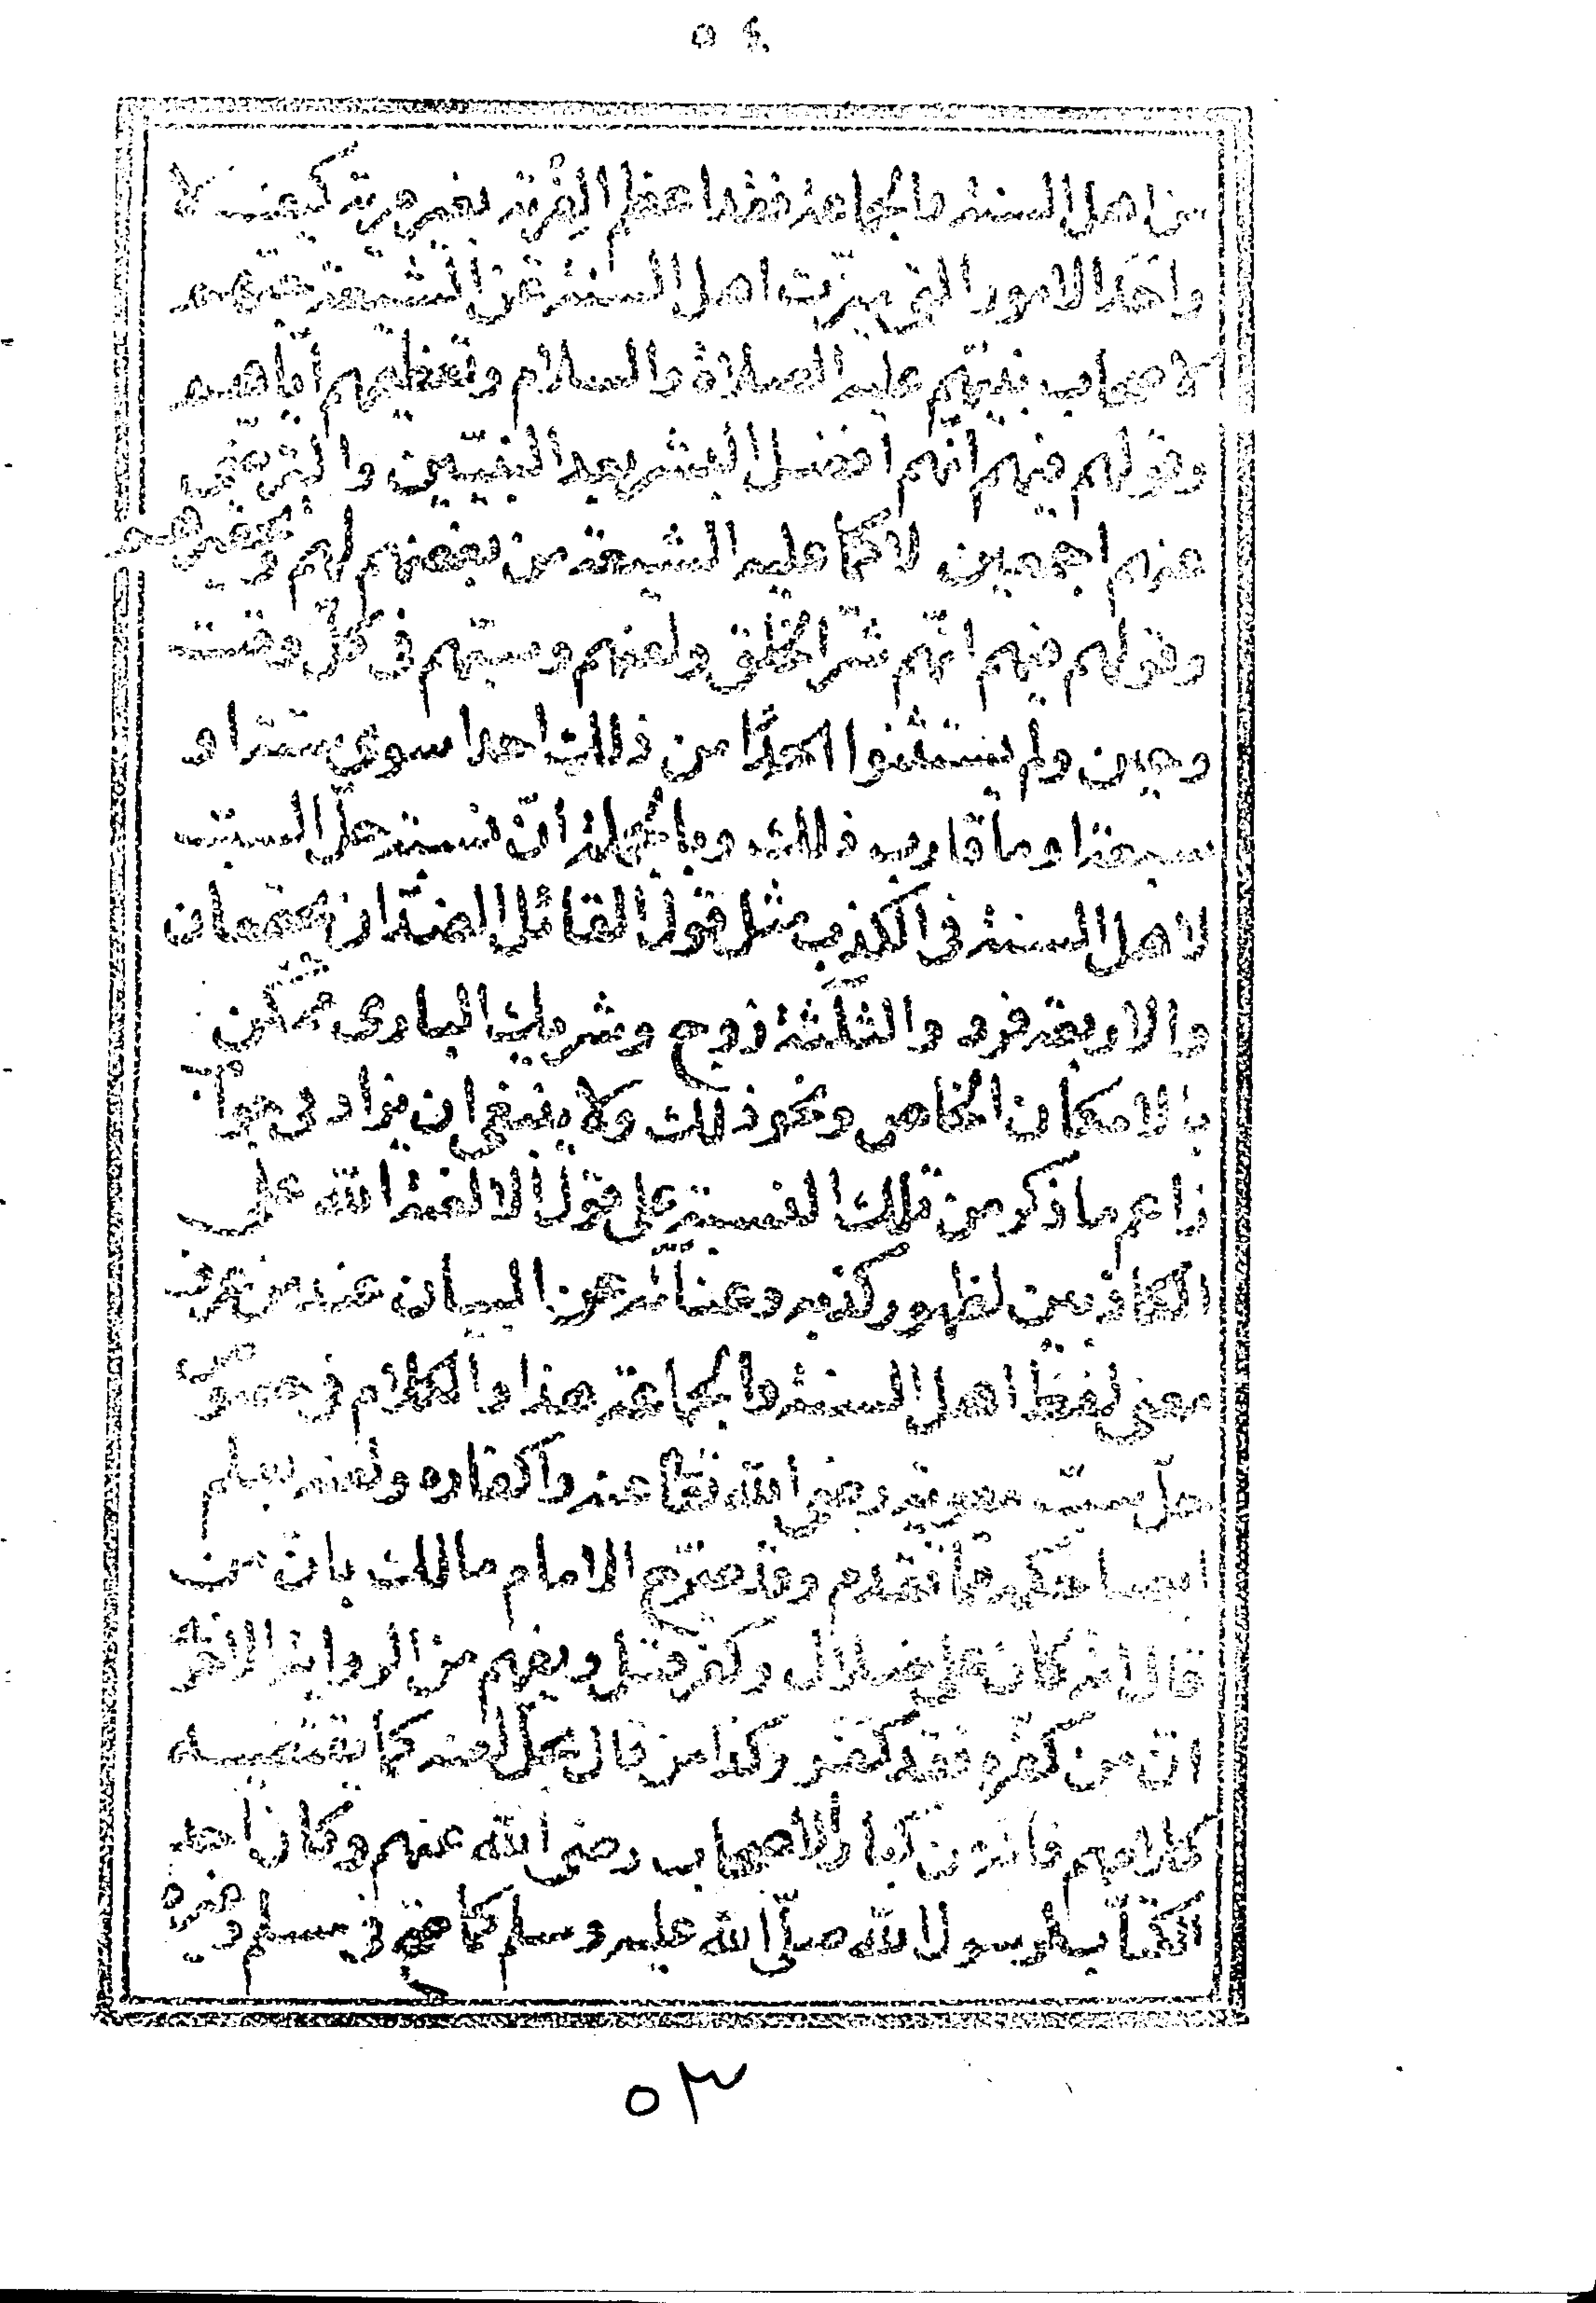 من اهل السنة والجماعة فقد اعظم الفرية بغير مرية كيف لا
واحد الامور التى ميزت اهل السنة عن الشيعة حبهم
لاصحاب نبيهم عليه الصلاة والسلام وتعظيمهم اياهم
وقولهم فيهم انهم افضل البشر بعد النبيين والترضى
عنهم اجمعين لا كما عليه الشيعة من بغضهم لهم وتكفيرهم
وقولهم فيهم انهم شر الخلق ولعنهم وسبهم فى كل وقت
وحين ولم يستثنوا من ذلك احدا سوى ستة او
سبعة او ما قارب ذلك وبالجملة ان نسبة حل السب
لاهل السنة فى الكذب مثل قول القائل الضدان يجتمعان
والاربعة فرد والثلثة زوج وشريك البارى ممكن
بالامكان الخاص ونحو ذلك ولا ينبغى ان يزاد فى جواب
زاعم ما ذكر من تلك النسبة على قول الا لعنة الله على
الكاذبين لظهور كذبه وغنائه عن البيان عند من عرف
معنى لفظ اهل السنة والجماعة هذا والكلام فى دعوى
حل سب معوية رضى الله تعالى عنه واكفاره ولعنه يعلم
ايضا حكمه مما تقدم وقد صرح الامام مالك بان من
قال انه كان على ضلال وكفر قتل ويفهم من الرواية الاخرى
ان من كفره فقد كفر وكذا من قال بحل لعنه كما تقتضيه
كلامهم فانه من كبار الاصحاب رضى الله عنهم وكان احد
الكتاب لرسول الله صلى الله عليه وسلم كما صح فى مسلم وغيره
٥٣